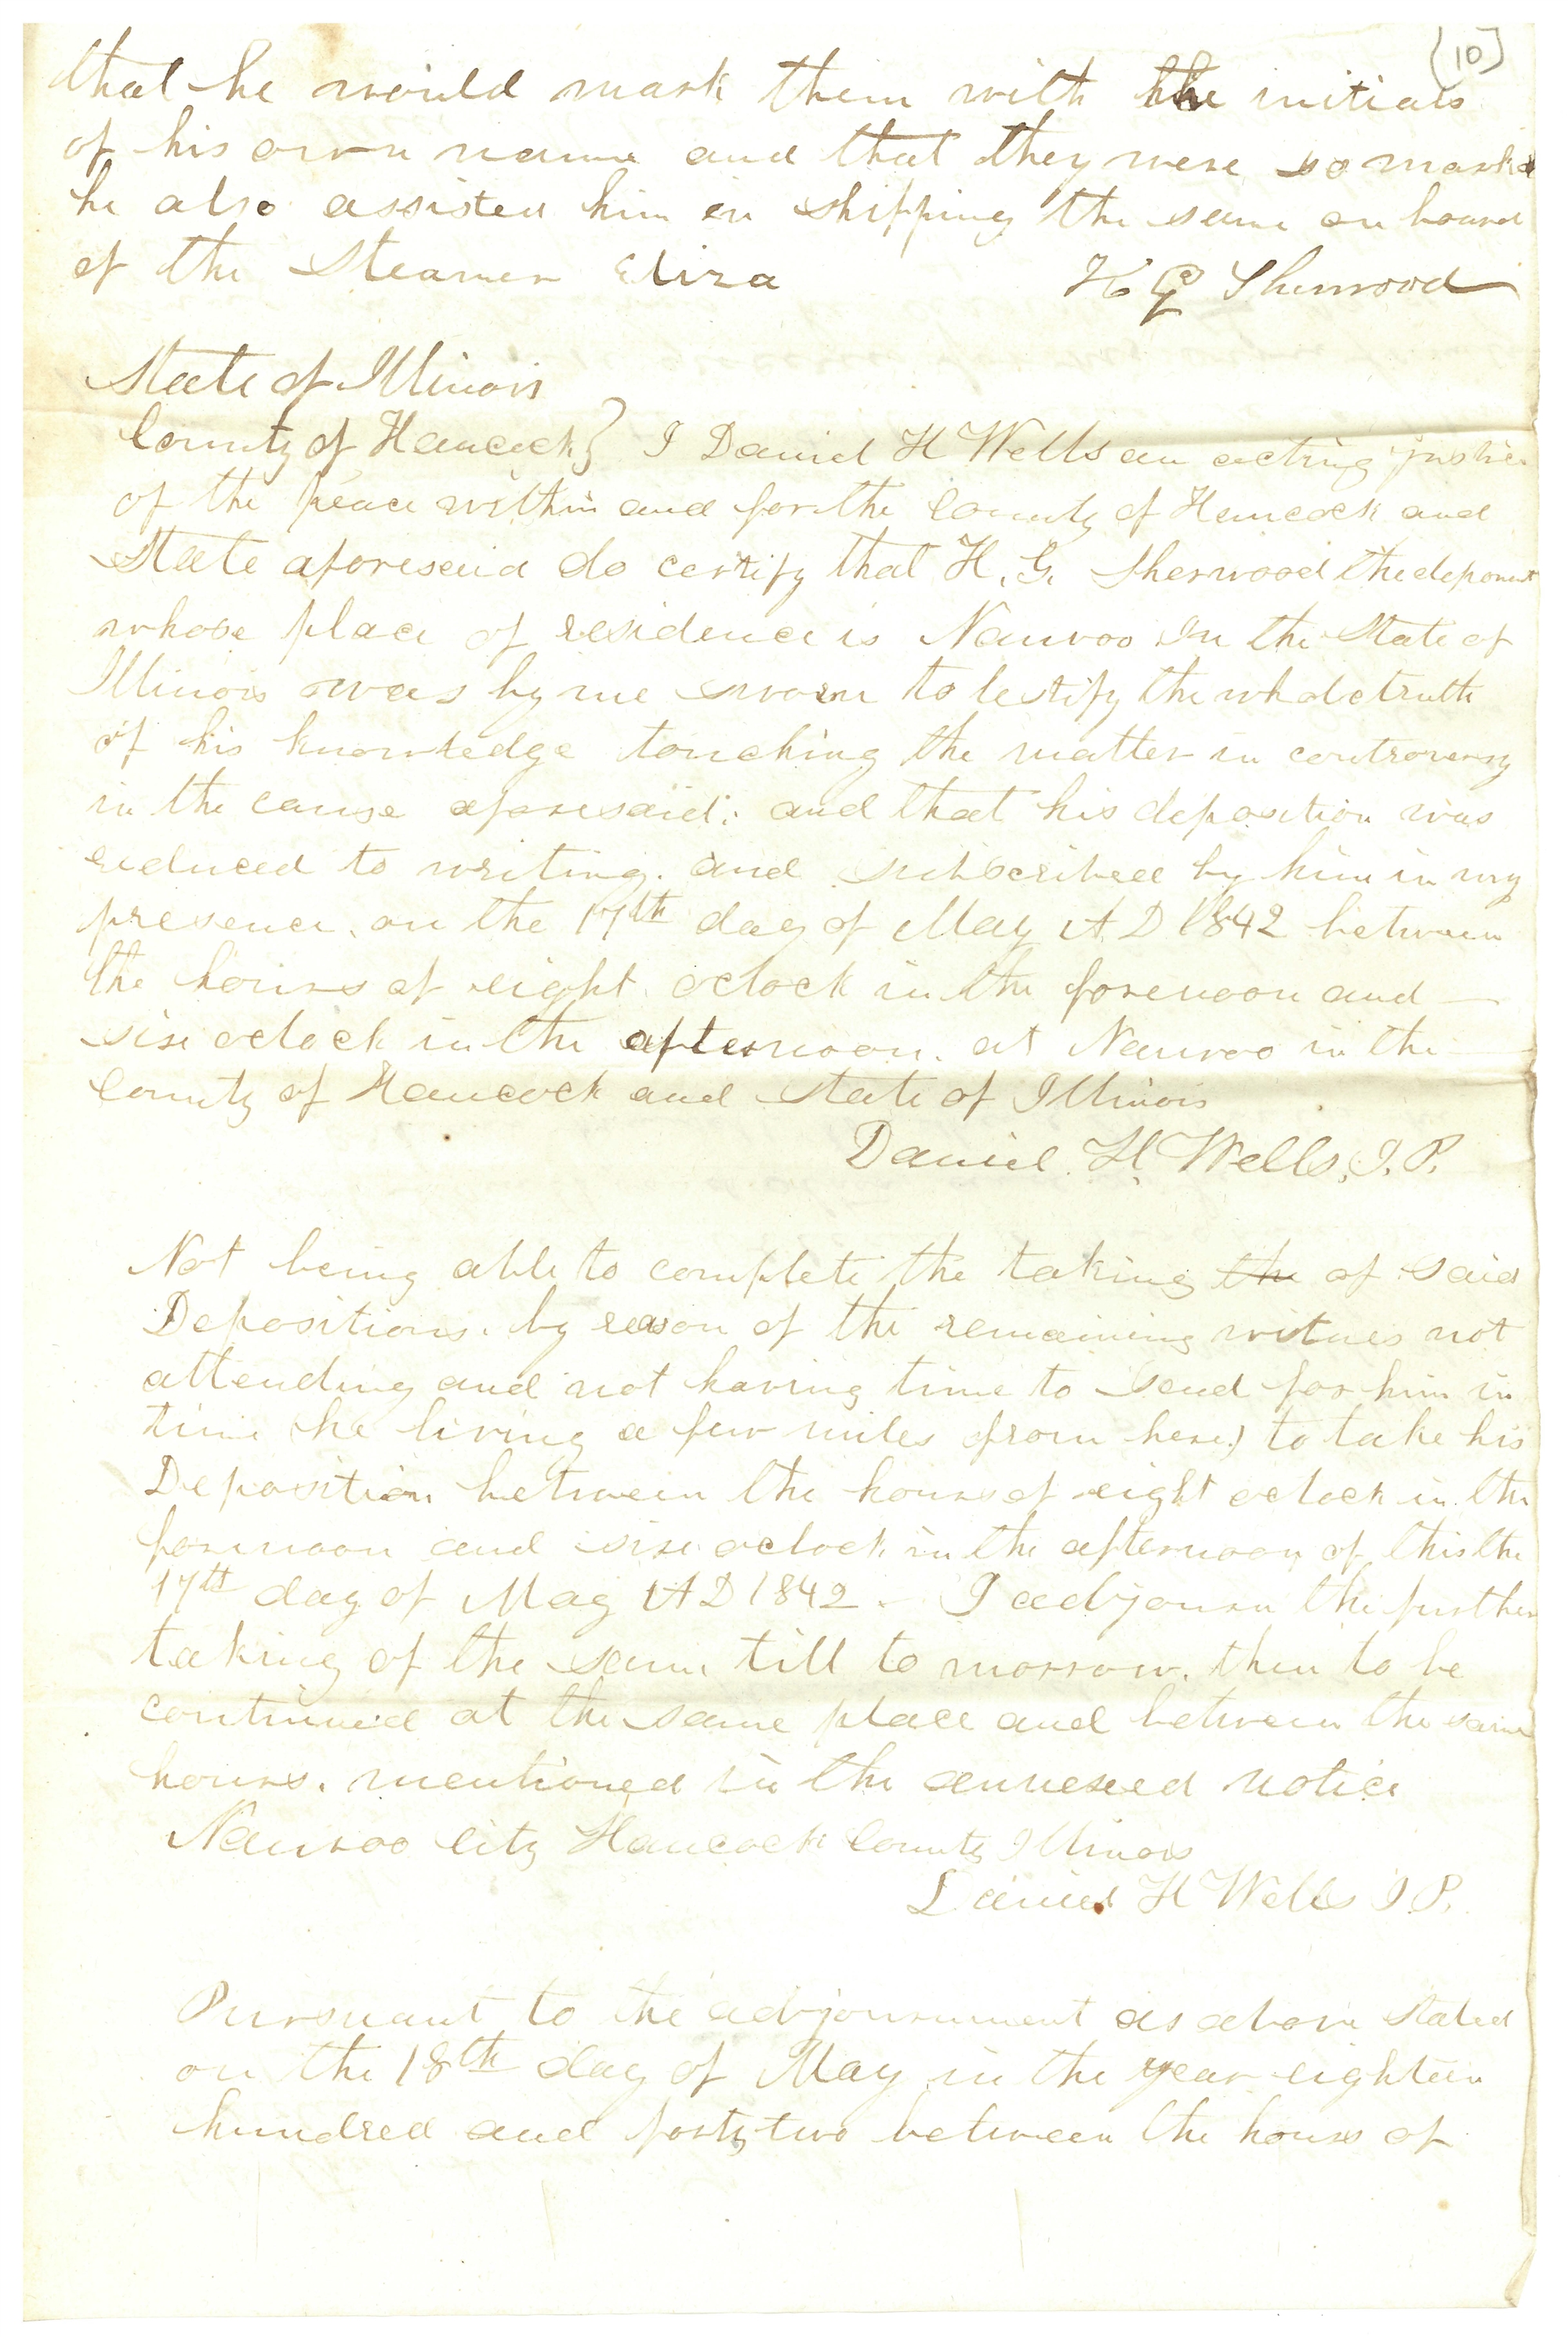 [10]
that he would mark them with the initials
of his own name and that they were so marked
he also assisted him in shipping the same on board
of the Steamer Eliza H G Sherwood
State of Illinois
County of Hancock} I Daniel H Wells an acting justice
of the peace within and for the County of Hancock and
State aforesaid do certify that H. G. Sherwood the deponent
whose place of residence is Nauvoo in the State of
Illinois was by me sworn to testify the whole truth
of his knowledge touching the matter in controversy
in the cause aforesaid; and that his deposition was
reduced to writing. and subscribed by him in my
presence, on the 17th day of May A D 1842 between
the hours of eight oclock in the forenoon and
six oclock in the afternoon. at Nauvoo in the
County of Hancock and State of Illinois
Daniel H. Wells, J. P.
Not being able to complete the taking the of said
Depositions. by reason of the remaining witnes not
attending and not having time to send for him in
time he living a few miles from here) to take his
Deposition between the hours of eight oclock in the
forenoon and six oclock in the afternoon of this the
17th day of May A D 1842 - I adjourn the further
taking of the same till to morrow. then to be
continued at the same place and between the same
hours. mentioned in the annexed notice
Nauvoo City Hancock County Illinois
Daniel H Wells J P.
Pursuant to the adjournment as above stated
on the 18th day of May in the year eighteen
hundred and forty two between the hours of